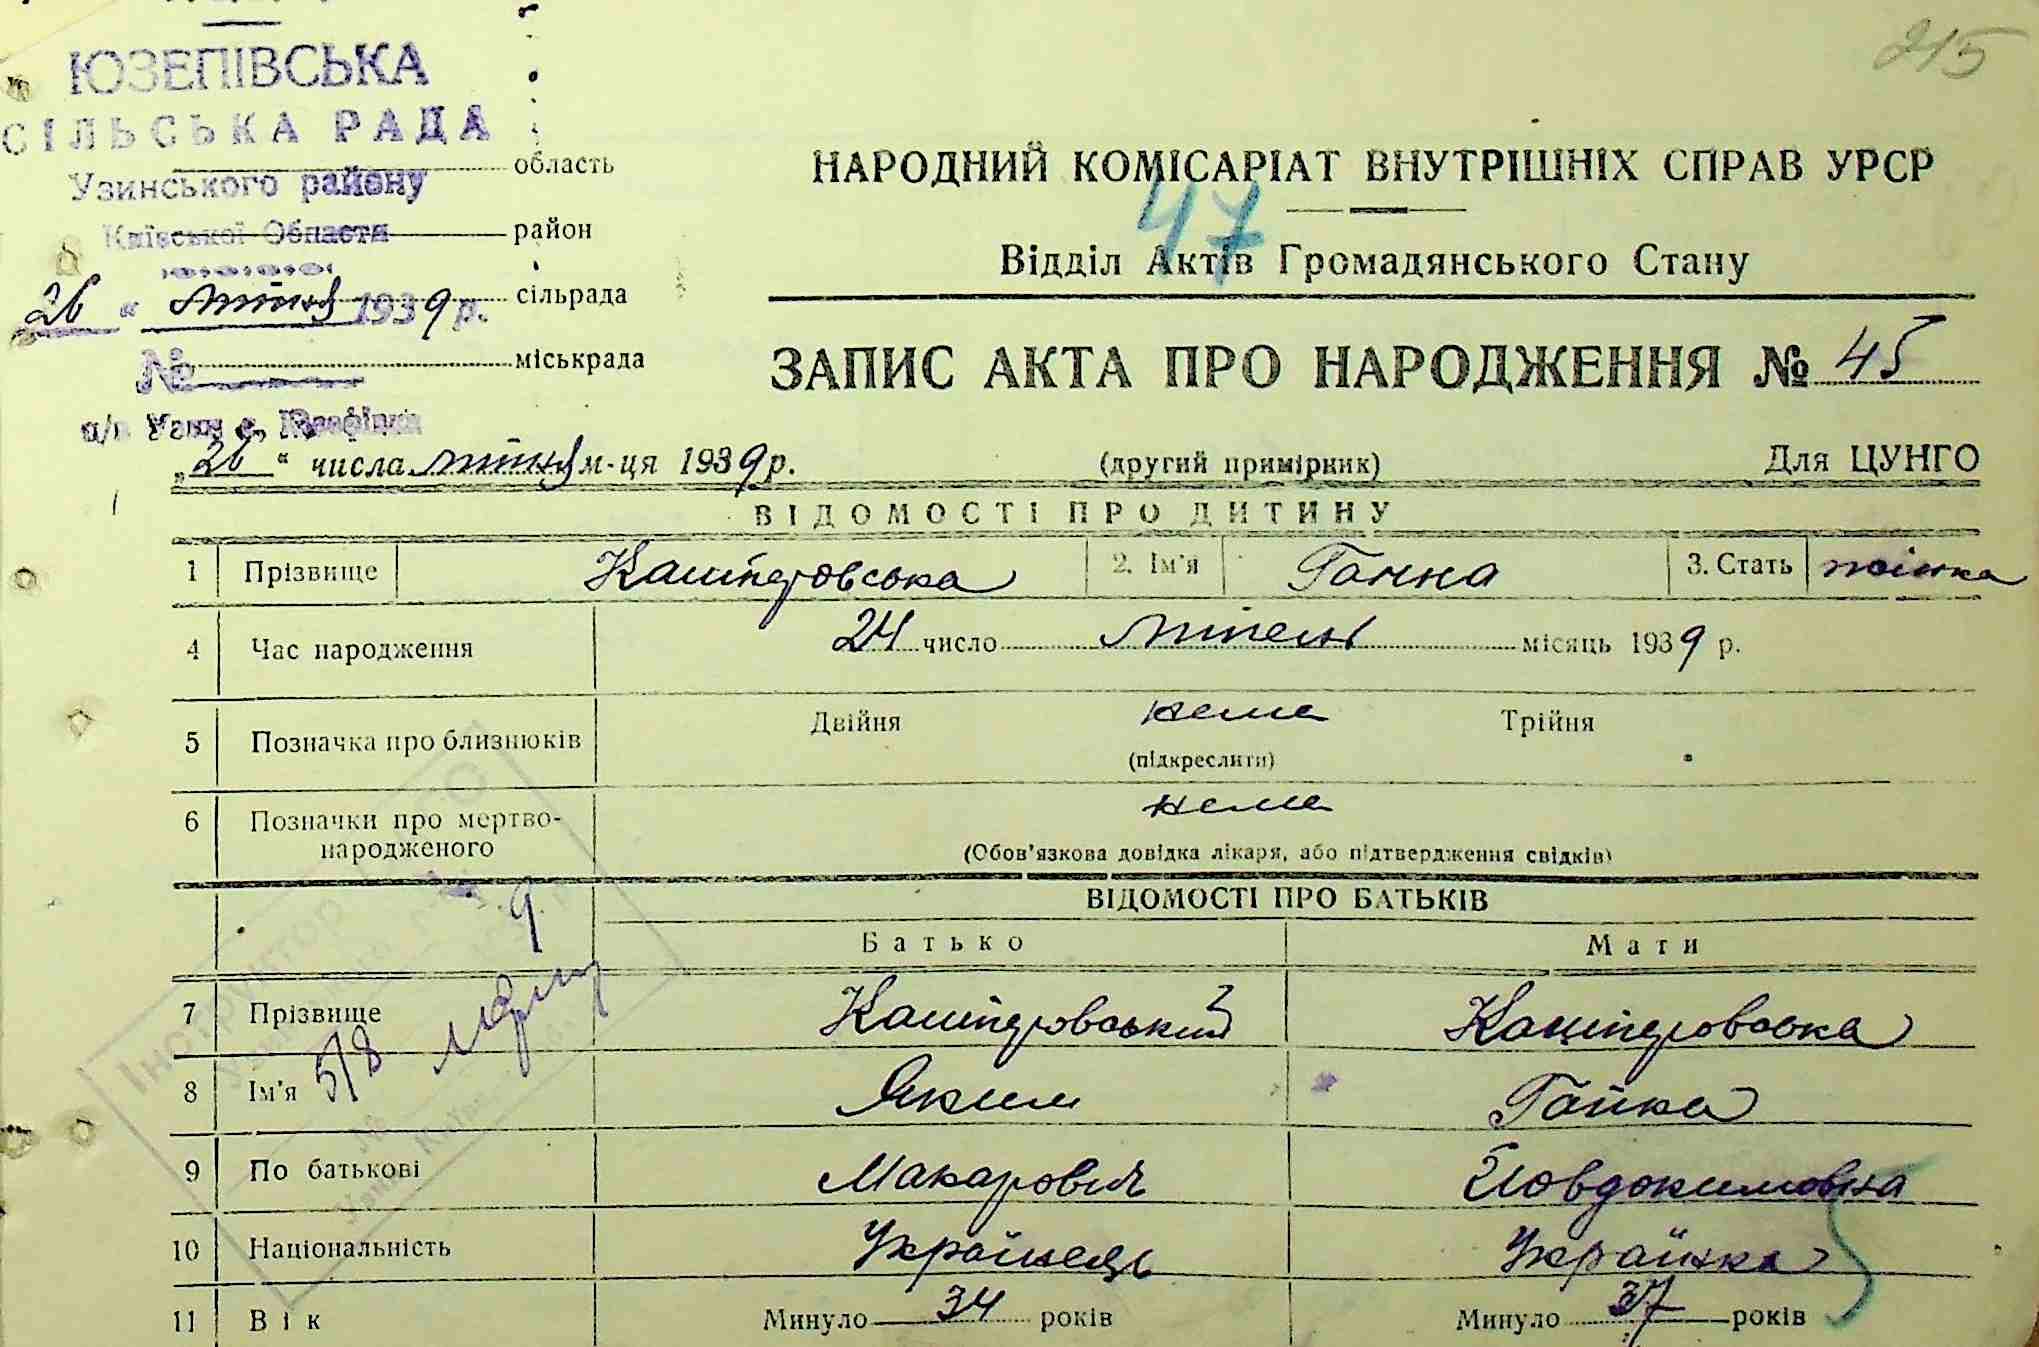 215
ЮЗЕПІВСЬКА
СІЛЬСЬКА РАДА
область
Узинського району
Київської Области район
26 " липня 1939 р. сільрада
№ міськрада
п/в Узин с.
НАРОДНИЙ КОМІСАРІАТ ВНУТРІШНІХ СПРАВ УРСР
47
Відділ Актів Громадянського Стану
ЗАПИС АКТА ПРО НАРОДЖЕННЯ № 45
„26“ числа липня м-ця 1939 р. (другий примірник) Для ЦУНГО
ВІДОМОСТІ ПРО ДИТИНУ
1 Прізвище Кашперовська 2. Ім'я Ганна 3. Стать жінка
4 Час народження 24 число липень місяць 1939 р.
5 Позначка про близнюків Двійня нема Трійня
(підкреслити)
6 Позначки про мертво-
народженого нема
(Обов'язкова довідка лікаря, або підтвердження свідків)
ВІДОМОСТІ ПРО БАТЬКІВ
Батько Мати
7 Прізвище Кашперовський Кашперовська
5/8
8 Ім'я Яким Гапка
9 По батькові Макарович Йовдокимовна
10 Національність Українець Українка
11 Вік Минуло 34 років Минуло 37 років